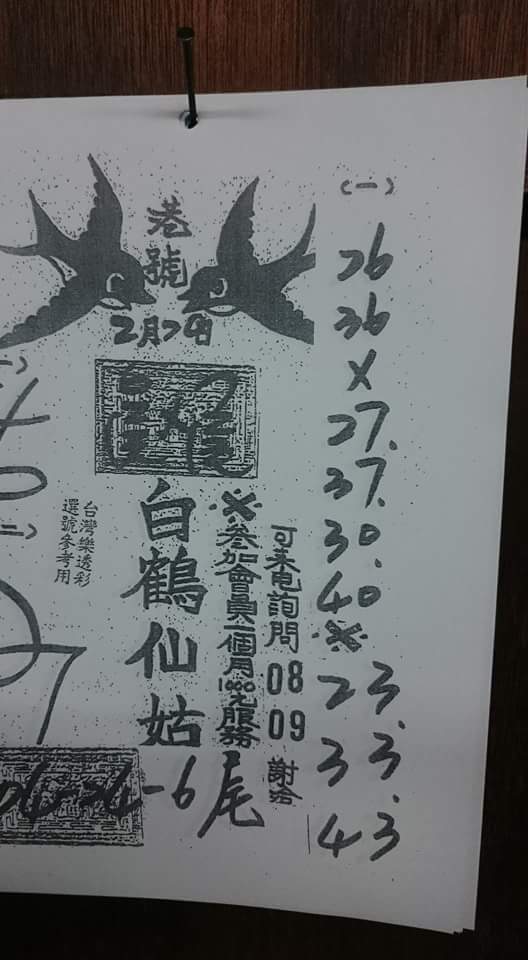 (一)
26
36
X
27.
37.
30.
40
※
23.
33.
43
港號
2月24日
可来电詢問
08
09
謝洽
※參加會員一個月1000元服務
白鶴仙姑
台灣樂透彩
選號參考用
04-34-6尾